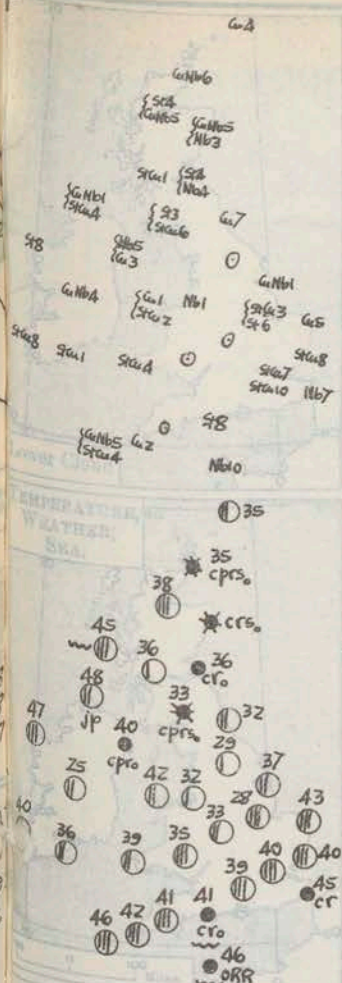 Cu4
CuNb6
{St4
{CuNb5
{CuNb5
{Nb3
StCu1
{St4
{Nb4
{CuNb1
{StCu4
{St3
{StCu6
Cu7
St8
{Nb5
{Cu3
CuNb1
CuNb4
{Cu1
{StCu2
Nb1
{StCu3
{St6
Cu5
StCu8
StCu1
StCu4
StCu8
StCu7
StCu10
Nb7
{CuNb5
{StCu4
Cu2
St8
Nb10
LOWER CLOUD
TEMPERATURE,
WEATHER,
SEA.
35
35
cprs₀
38
crs₀
45
36
36
cr₀
48
jp
33
cprs₀
32
47
40
cpr₀
29
37
25
42
32
28
43
40
33
36
39
35
39
40
40
45
cr
46
42
41
41
cr₀
46
oRR